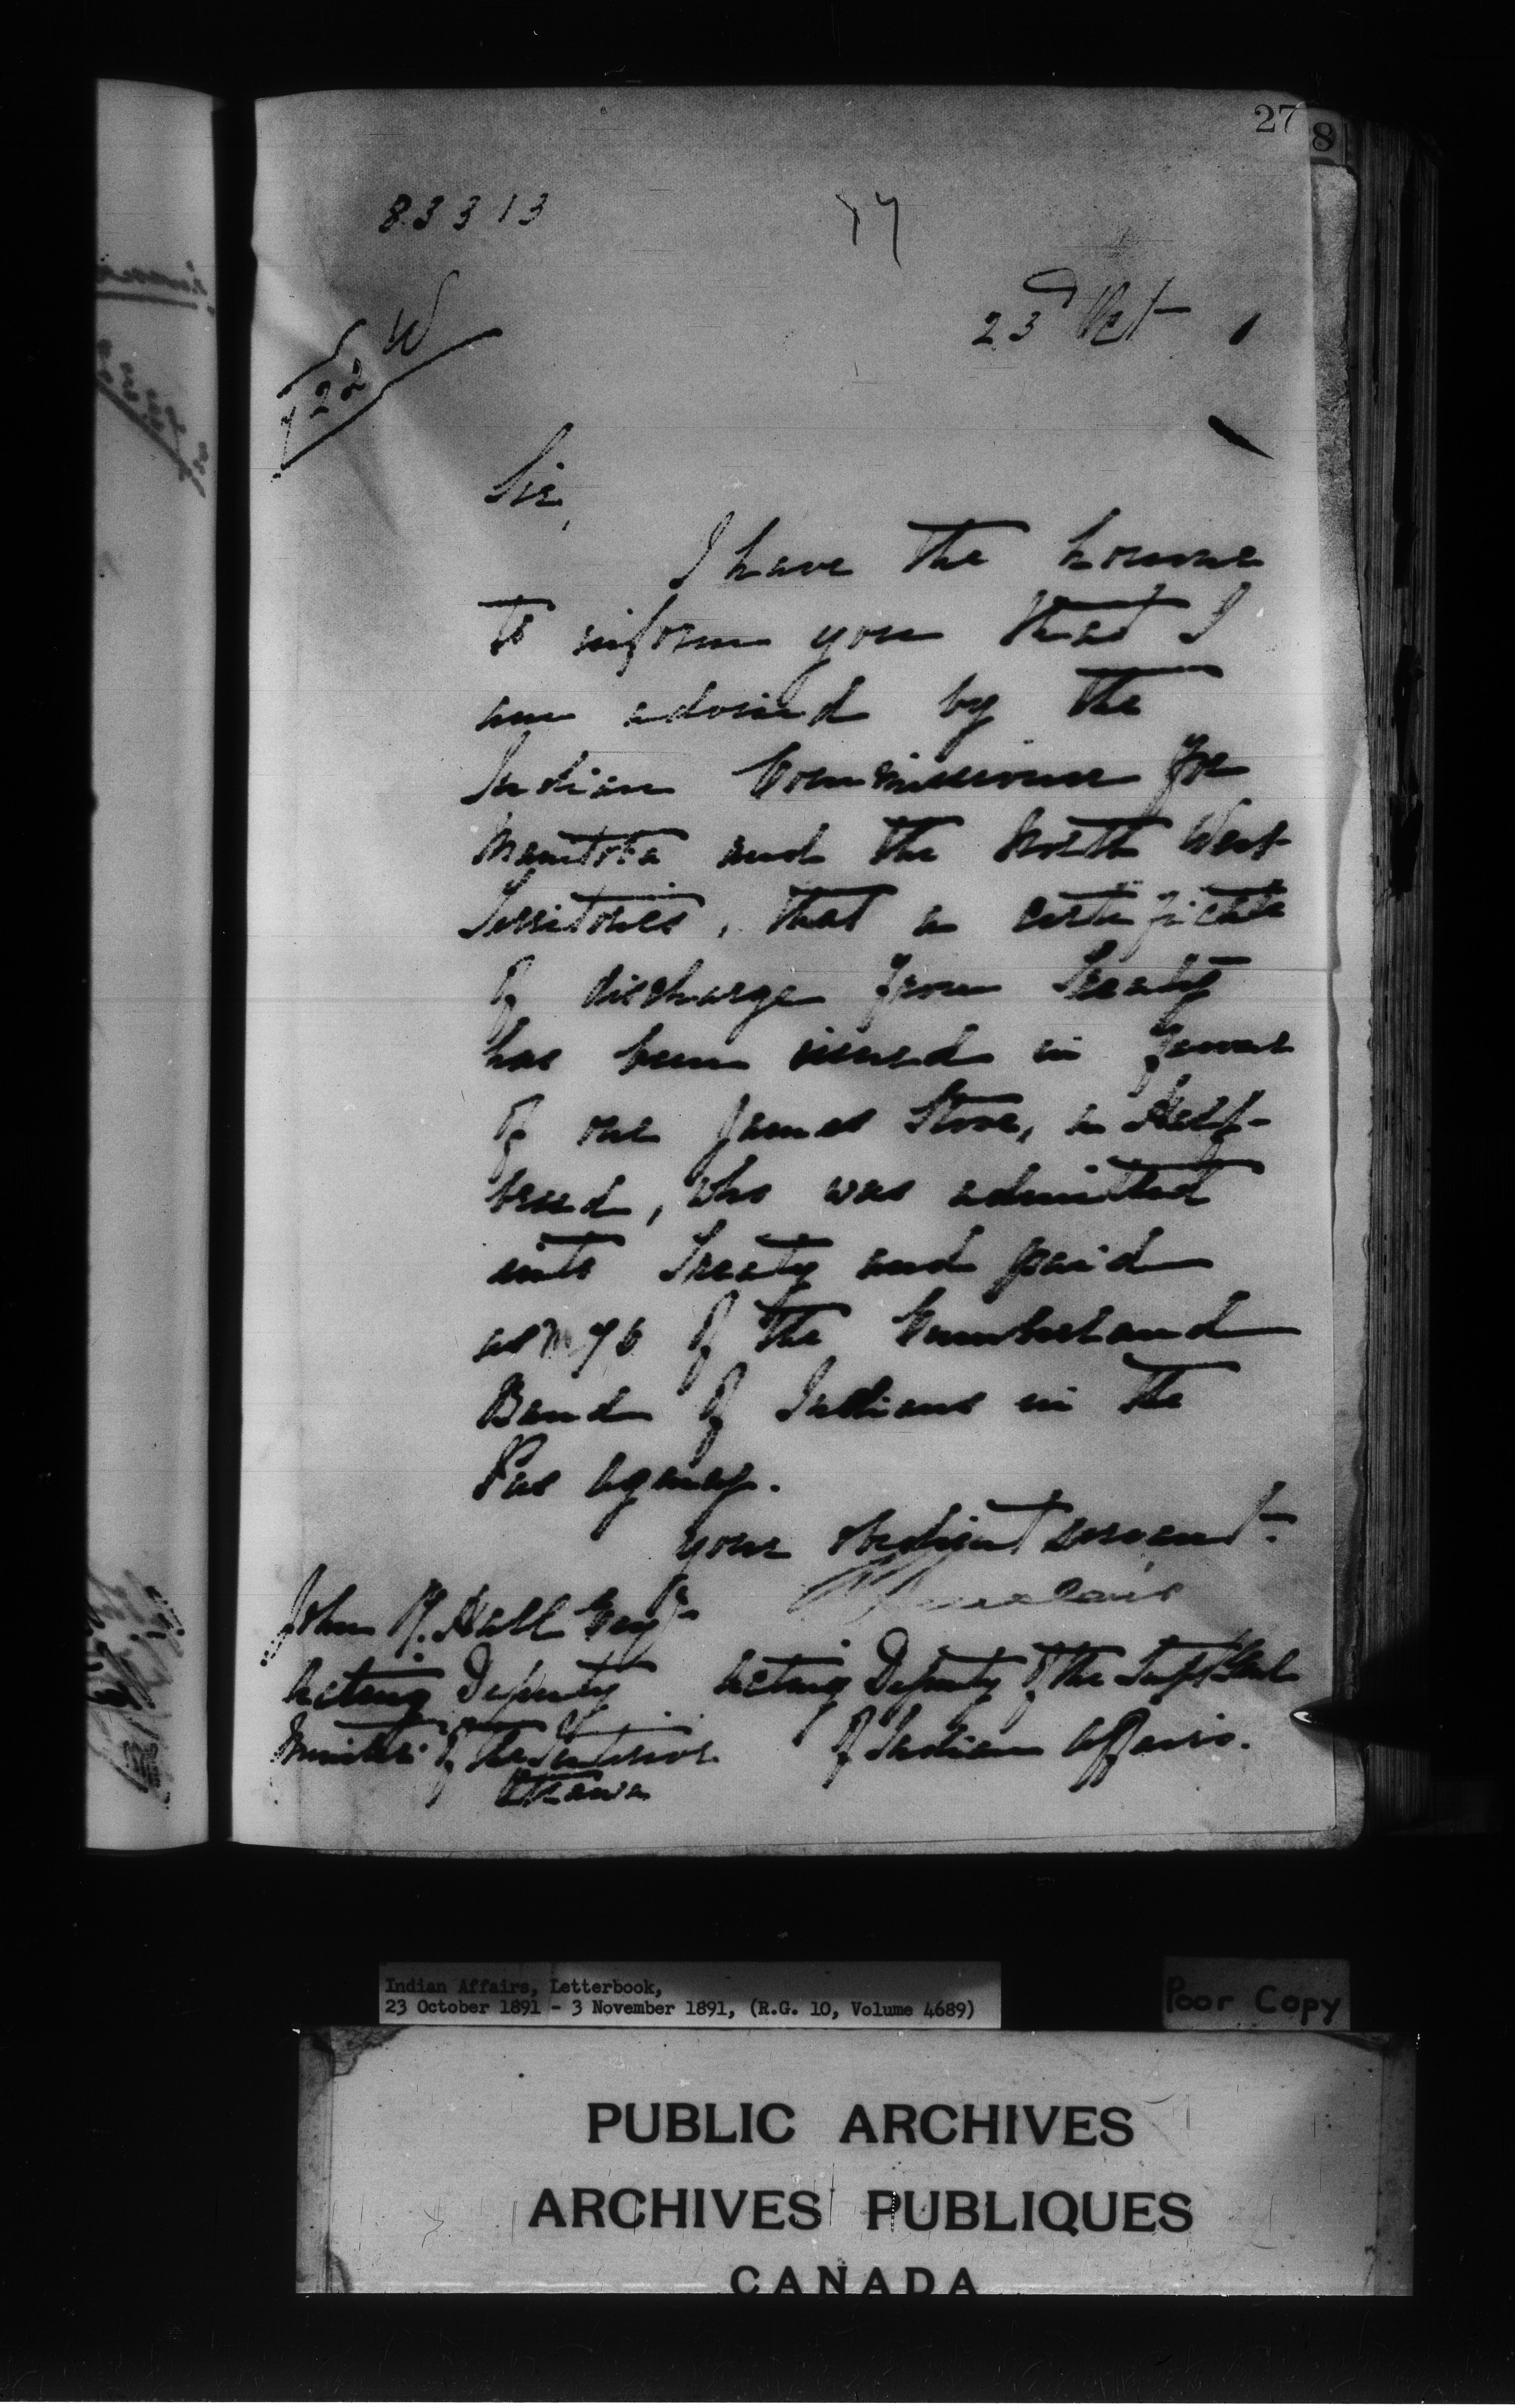 27
8
83313
23d Oct 1
W
122
Sir,
I have the honour
to inform you that I
am advised by the
Indian Commissioner for
Manitoba and the North West
Territories, that a certificate
of discharge from Treaty
has been issued in favour
of one James Stove, a Half-
breed, who was admitted
into Treaty and paid
as No 76 of the Cumberland
Band of Indians in the
Pas Agency.
Your obedient servant.
Sinclair
John R. Hall Esq
Acting Deputy
Minister of the Interior
Ottawa
Acting Deputy of the Supt Genl
of Indian Affairs.
Indian Affairs, Letterbook,
23 October 1891 - 3 November 1891, (R.G. 10, Volume 4689)
Poor Copy
PUBLIC ARCHIVES
ARCHIVES PUBLIQUES
CANADA